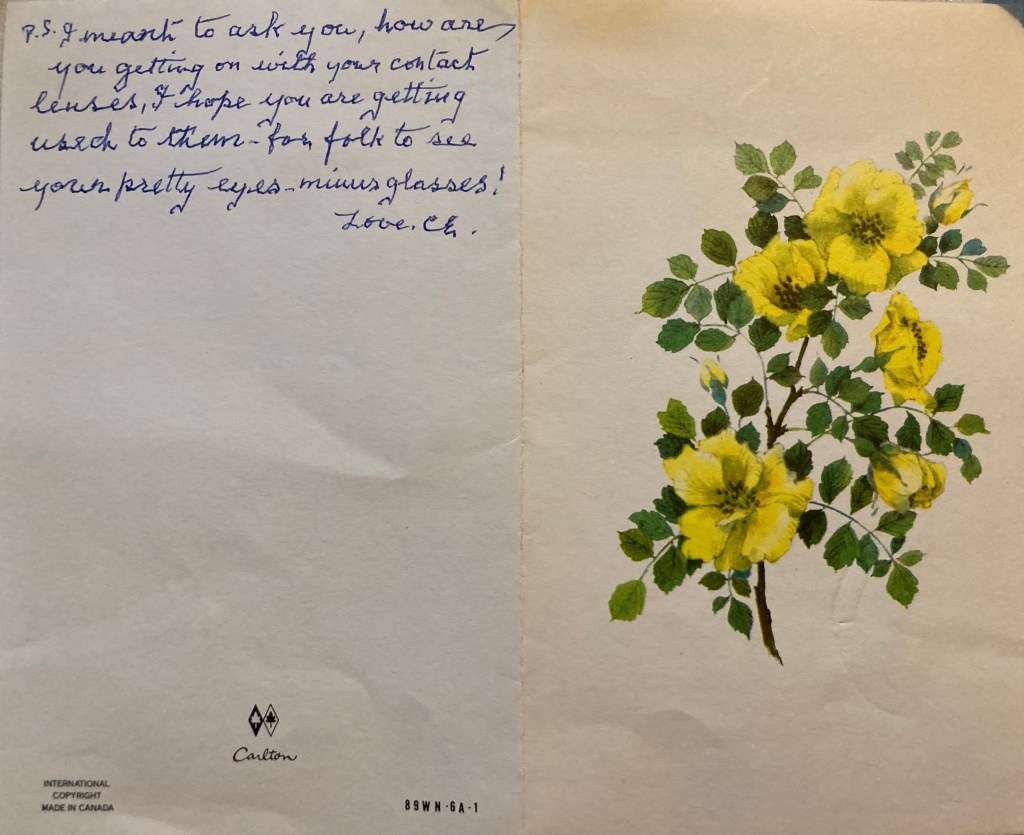 P.S. I meant to ask you, how are
you getting on with your contact
lenses, I hope you are getting
used to them - for folk to see
your pretty eyes - minus glasses!
Love. CE.
Carlton
INTERNATIONAL
COPYRIGHT
MADE IN CANADA
89WN-6A-1